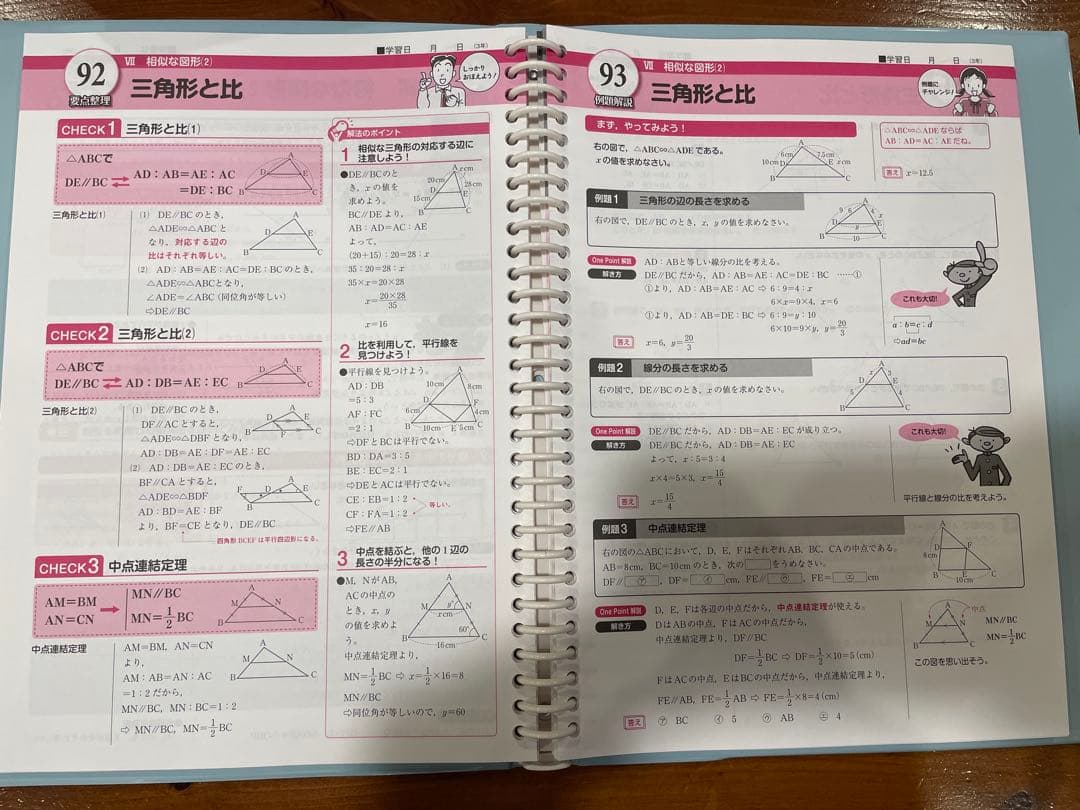 92
要点整理
Ⅶ 相似な図形(2)
三角形と比
■学習日 月 日 (3年)
しっかり
おぼえよう!
CHECK1 三角形と比(1)
△ABCで
DE∥BC ⇄ AD:AB=AE:AC
=DE:BC
A
D E
B C
三角形と比(1)
(1) DE∥BCのとき,
△ADE∽△ABCと
なり,対応する辺の
比はそれぞれ等しい。
(2) AD:AB=AE:AC=DE:BCのとき,
△ADE∽△ABCとなり,
∠ADE=∠ABC(同位角が等しい)
⇨DE∥BC
A
D E
B C
CHECK2 三角形と比(2)
△ABCで
DE∥BC ⇄ AD:DB=AE:EC
A
D E
B C
三角形と比(2)
(1) DE∥BCのとき,
DF∥ACとすると,
△ADE∽△DBFとなり,
AD:DB=AE:DF=AE:EC
(2) AD:DB=AE:ECのとき,
BF∥CAとすると,
△ADE∽△BDF
AD:BD=AE:BF
より,BF=CEとなり,DE∥BC
四角形BCEFは平行四辺形になる。
A
D E
B F C
A
F D E
B C
CHECK3 中点連結定理
AM=BM
AN=CN
→
MN∥BC
MN=1/2BC
A
M N
B C
中点連結定理
AM=BM,AN=CN
より,
AM:AB=AN:AC
=1:2だから,
MN∥BC,MN:BC=1:2
⇨ MN∥BC,MN=1/2BC
A
M N
B C
解法のポイント
1 相似な三角形の対応する辺に
注意しよう!
●DE∥BCのと
き,xの値を
求めよう。
BC∥DEより,
AB:AD=AC:AE
よって,
(20+15):20=28:x
35:20=28:x
35×x=20×28
x=20×28/35
x=16
A
xcm
20cm
28cm
D E
15cm
B C
2 比を利用して,平行線を
見つけよう!
●平行線を見つけよう。
AD:DB
=5:3
AF:FC
=2:1
⇨DFとBCは平行でない。
BD:DA=3:5
BE:EC=2:1
⇨DEとACは平行でない。
CE:EB=1:2
CF:FA=1:2
等しい。
⇨FE∥AB
A
10cm 8cm
D F
6cm 4cm
B 10cm E 5cm C
3 中点を結ぶと,他の1辺の
長さの半分になる!
●M,NがAB,
ACの中点の
とき,x,y
の値を求めよ
う。
中点連結定理より,
MN=1/2BC ⇨ x=1/2×16=8
MN∥BC
⇨同位角が等しいので,y=60
A
M y° N
xcm
60°
B 16cm C
93
例題解説
Ⅶ 相似な図形(2)
三角形と比
■学習日 月 日 (3年)
例題に
チャレンジ!
まず,やってみよう!
右の図で,△ABC∽△ADEである。
xの値を求めなさい。
A
6cm 7.5cm
10cm D E xcm
B C
△ABC∽△ADEならば
AB:AD=AC:AEだね。
答え x=12.5
例題1 三角形の辺の長さを求める
右の図で,DE∥BCのとき,x,yの値を求めなさい。
A
9 6 4 x
D y E
B 10 C
One Point 解説 AD:ABと等しい線分の比を考える。
解き方 DE∥BCだから,AD:AB=AE:AC=DE:BC ……①
①より,AD:AB=AE:AC ⇨ 6:9=4:x
6×x=9×4,x=6
①より,AD:AB=DE:BC ⇨ 6:9=y:10
6×10=9×y,y=20/3
答え x=6,y=20/3
これも大切!
a:b=c:d
⇨ad=bc
例題2 線分の長さを求める
右の図で,DE∥BCのとき,xの値を求めなさい。
A
x 3
D E
5 4
B C
One Point 解説 DE∥BCだから,AD:DB=AE:ECが成り立つ。
解き方 DE∥BCだから,AD:DB=AE:EC
よって,x:5=3:4
x×4=5×3,x=15/4
答え x=15/4
これも大切!
平行線と線分の比を考えよう。
例題3 中点連結定理
右の図の△ABCにおいて,D,E,FはそれぞれAB,BC,CAの中点である。
AB=8cm,BC=10cmのとき,次の□をうめなさい。
DF∥㋐,DF=㋑cm,FE∥㋒,FE=㋓cm
A
D F
8cm
B E C
10cm
One Point 解説 D,E,Fは各辺の中点だから,中点連結定理が使える。
解き方 DはABの中点,FはACの中点だから,
中点連結定理より,DF∥BC
DF=1/2BC ⇨ DF=1/2×10=5(cm)
FはACの中点,EはBCの中点だから,中点連結定理より,
FE∥AB,FE=1/2AB ⇨ FE=1/2×8=4(cm)
答え ㋐ BC ㋑ 5 ㋒ AB ㋓ 4
A
中点
M N
B C
MN∥BC
MN=1/2BC
この図を思い出そう。